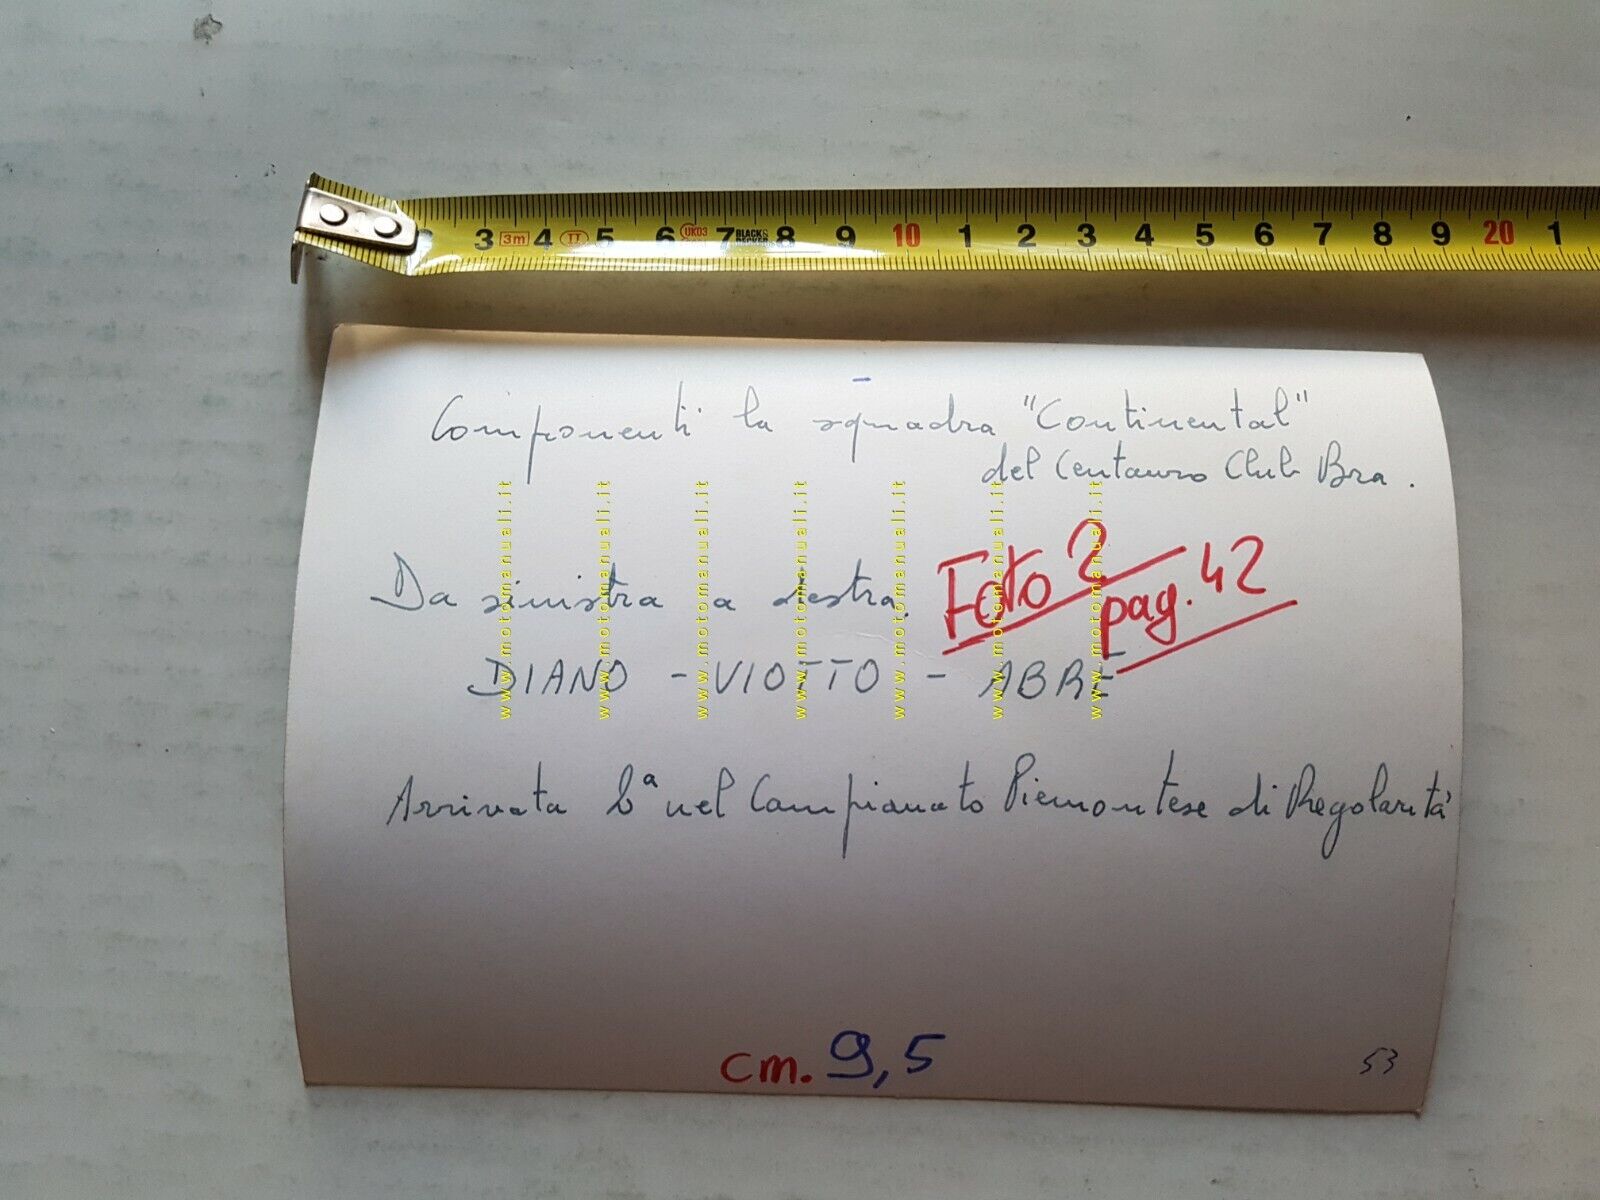 2 3 3m 4 II 5 6 UK03 7 BLACK& DECKER 8 9 10 1 2 3 4 5 6 7 8 9 20 1
Componenti la squadra "Continental"
del Centauro Club Bra.
Da sinistra a destra.
Foto 2
pag. 42
DIANO - VIOTTO - ABRE
Arrivata 6ª nel Campionato Piemontese di Regolarità
www.motomanuali.it
www.motomanuali.it
www.motomanuali.it
www.motomanuali.it
www.motomanuali.it
www.motomanuali.it
www.motomanuali.it
cm. 9,5
53